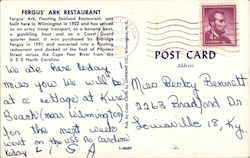 FERGUS' ARK RESTAURANT
Fergus' Ark, floating Seafood Restaurant, was
built here in Wilmington in 1922 and has served
as an army troop transport, as a banana boat,
a gambling boat and as a Coast Guard
quarter boat. It was purchased by Eldridge
Fergus in 1951 and converted into a floating
restaurant and docked at the foot of Princess
Street across the Cape Fear River from the
U S S North Carolina.
We ate here today
miss you. We will be
at a cottage at Kure
Beach (near Wilmington)
for the next week
went on the USS No. Carolina
today L S A
POST CARD
Address
Miss Becky Bennett
2263 Bradford Dr
Louisville 18, Ky